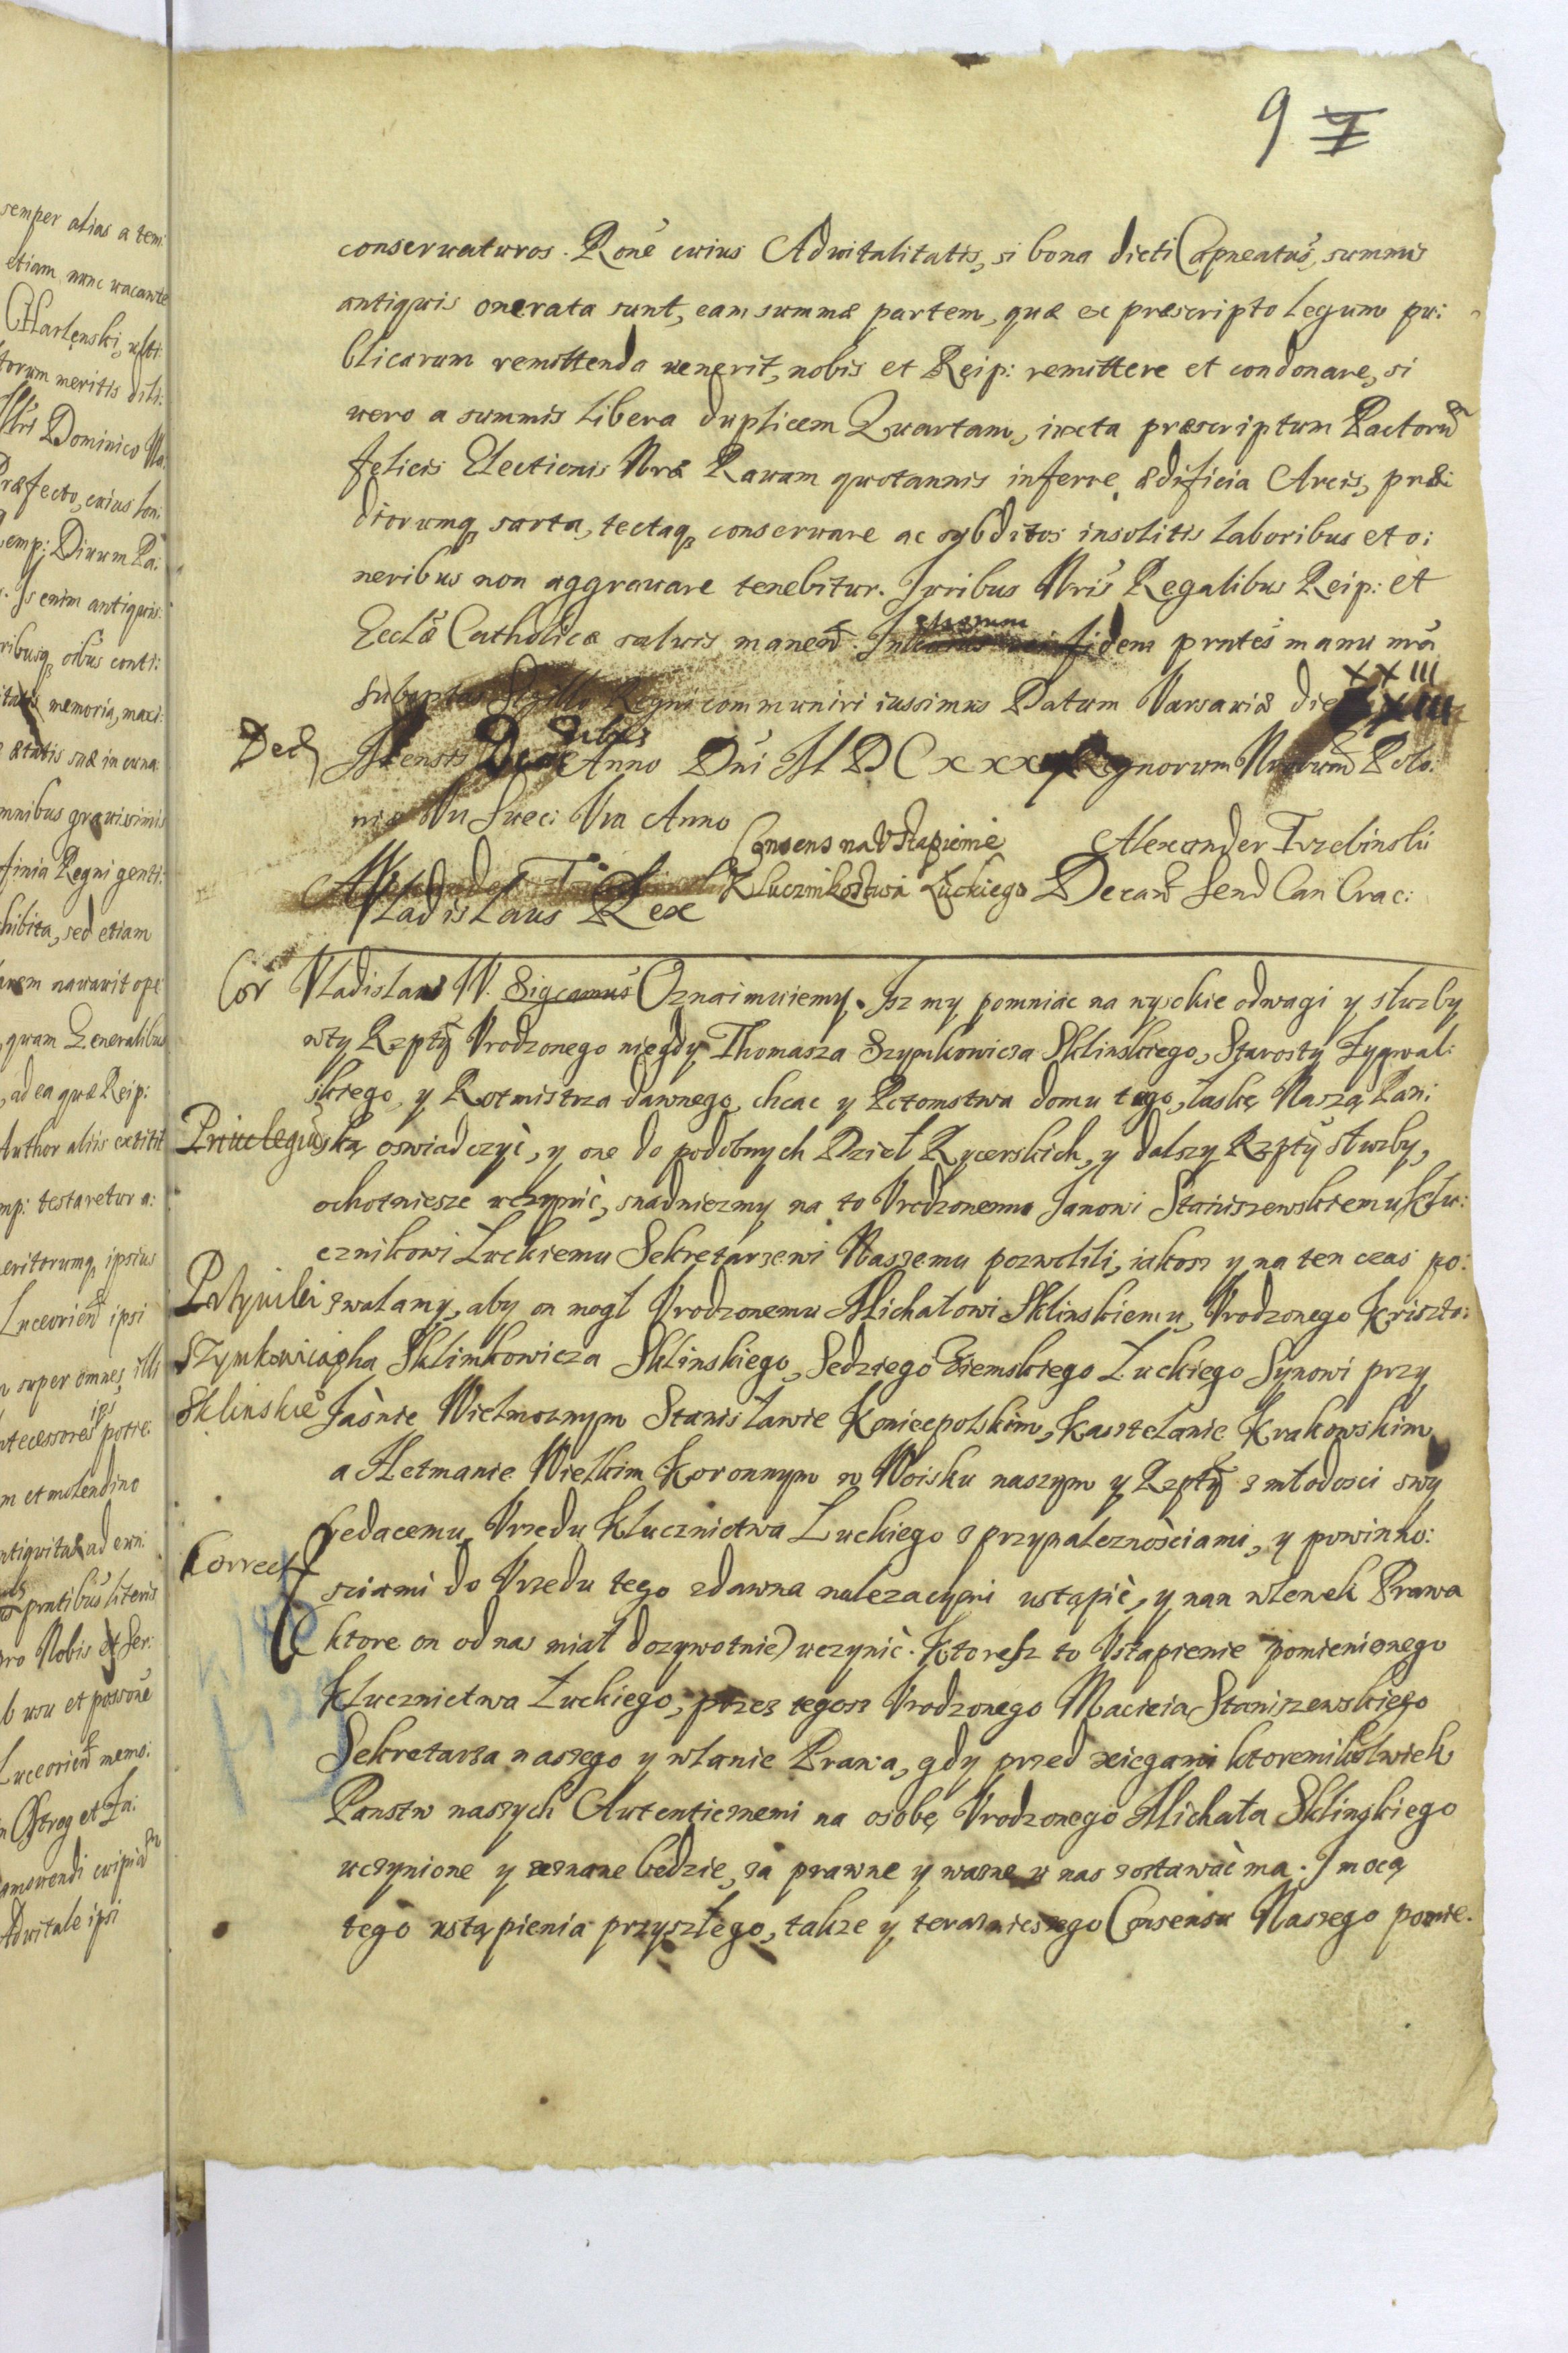 semper alias a tem:
etiam nunc vacante
Charlęnski, ulti:
torum meritis diti:
Dominico Wa:
Præfecto, cuius lon:
emp: Divum Pa:
Is enim antiquis:
ribusq oibus conti:
memoria, maxi:
ætatis suæ in cuna:
mnibus gravissimis
finia Regni genti:
hibita, sed etiam
navavit ope
quam Generalibus
, ad ea quæ Reip:
Author aliis extitit
mp: testaretur a:
eritorumq ipsius
Luceorien ipsi
super omnes illi
ntecessores ips potie:
m et molendino
ntiquitus ad eun:
pntibus literis
ro Nobis et Ser:
b usu et possone
Luceorien memo:
Ostrog et Za:
amovendi cuipiam
Advitale ipsi
9 7
conservaturos. Rone cuius Advitalitatis, si bona dicti Capneatus, summis
antiquis onerata sunt, eam summæ partem, quæ ex præscripto legum pu:
blicarum remittenda venerit, nobis et Reip: remittere et condonare, si
vero a summis libera duplicem Quartam, iuxta præscriptum Pactoru
felicis Electionis Nræ Ravam quotannis inferre, ædificia Arcis, prædi:
diorumq sarta, tectaq conservare ac sybditos insolitis laboribus et o:
neribus non aggravare tenebitur. Iuribus Nris Regalibus Reip: et
Ecclæ Catholicæ salvis manen. In fidem pntes manu nra
subsptas Sigillo Regni communiri iussimus Datum Varsaviæ die XXIII
Ded Mensis Xbris Anno Dni M D C xxx Regnorum Nrorum Polo:
niæ Vu Suec: Vra Anno
Consens na Ustąpienie
Klucznikostwa Łuckiego
Alexander Trzebinski
Decan Send Can Crac:
Vladislaus Rex
Cor Vladislaus W. Sigcamus Oznaimuiemy. Isz my pomniac na wysokie odwagi y słuzby
wty Rzpty Vrodzonego niegdy Thomasza Szymkowicza Sklinskiego, Starosty Zygwal:
skiego, y Rotmistrza dawnego, chcac y Potomstwu domu tego, łaskę Naszą Pan:
Priuelegiu ską oswiadczyć, y one do podobnych Dzieł Rycerskich, y dalszy Rzpty słuzby,
ochotniesze uczynić, snadniezmy na to Vrodzonemu Janowi Staniszewskiemu Klu:
cznikowi Łuckiemu Sekretarzewi Naszemu pozwolili, iakosz y na ten czas po:
zwalamy, aby on mogł Vrodzonemu Michałowi Sklinskiemu, Vrodzonego Kriszto:
Szymkowicza pha Sklimkowicza Sklinskiego, Sedziego Ziemskiego Łuckiego Synowi przy
Sklinskie Jaśnie Wielmoznym Stanisławie Koniecpolskim, Kasztelanie Krakowskim
a Hetmanie Wielkim Koronnym w Woisku naszym y Rzpty z młodosci swy
bedacemu, Vrzedu Klucznictwa Łuckiego z przynaleznościami, y powinno:
Correct sciami do Vrzedu tego zdawna nalezacymi ustąpić, y nan wlewek Prawa
(ktore on od nas miał dozywotnie) uczynić. Ktoresz to Vstąpienie pomienionego
Klucznictwa Łuckiego, przez tegosz Vrodzonego Macieia Staniszewskiego
Sekretarza naszego y wlanie Prawa, gdy przed xiegami ktoremikolwiek
Panstw naszych Autenticznemi na osobę Vrodzonego Michała Sklinskiego
uczynione y zeznane bedzie, za prawne y wazne u nas zostawać ma. I mocą
tego ustąpienia przyszłego, takze y terazniesnego Consensu Naszego pomie.